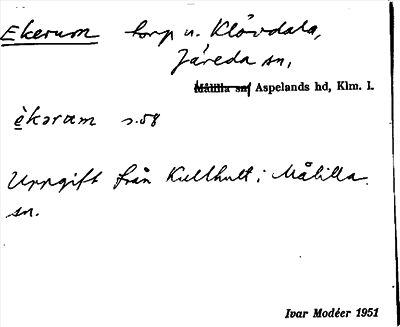 Ekerum torp u. Klövdala,
Järeda sn,
Målilla sn, Aspelands hd, Klm. l.
èkərum s.58
Uppgift från Kullhult i Målilla
sn.
Ivar Modéer 1951